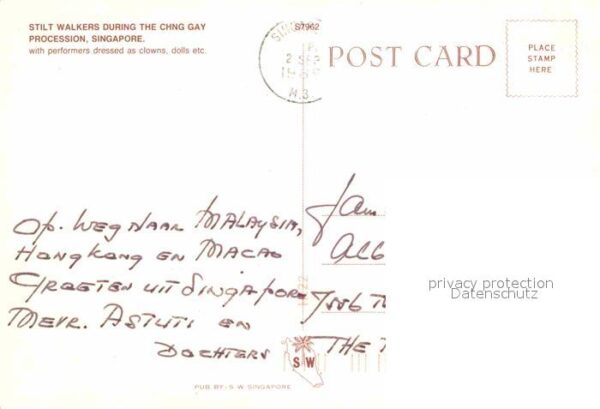 STILT WALKERS DURING THE CHNG GAY
PROCESSION, SINGAPORE.
with performers dressed as clowns, dolls etc.
S7962
POST CARD
PLACE
STAMP
HERE
Op. Weg Naar Malaysia,
Hongkong en Macao
Groeten uit Singapore
Mevr. Astuti en
Dochters
Jan
Alb
7556
The
privacy protection
Datenschutz
S W
PUB BY:- S W SINGAPORE